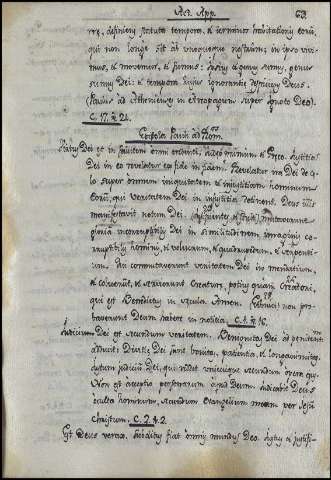 Act. App. 63.
rre, definiens statuta tempora, et terminos habitationis eorum,
qui non longe sit ab unoquoque nostrum; in ipso vivi-
mus, et movemur, et sumus: ipsius et genus sumus, genus
sumus Dei: et tempora huius ignorantiae despiciens Deus.
(Paulus ad Athenienses in Areopagum super ignoto Deo).
C. 17. a 24.
Epistola Pauli ad Rom.
Virtus Dei est in salutem omni credenti, Iudaeo primum et Graeco. Iustitia
Dei in eo revelatur ex fide in fidem. Revelatur ira Dei de c-
lo super omnem iniquitatem et iniustitiam hominum
eorum, qui veritatem Dei in iniustitia detinent. Deus illis
manifestavit notum Dei. mutaverunt
gloriam incorruptibilis Dei in similitudinem imaginis co-
rruptibilis hominis, et volucrum, et quadrupedum, et serpenti-
um. Qui commutaverunt veritatem Dei in mendacium,
et coluerunt, et servierunt Creaturae, potius quam Creatori,
qui est Benedictus in saecula. Amen. non pro-
baverunt Deum habere in notitia. C. 1. a 16.
Iudicium Dei est secundum veritatem. Benignitas Dei ad penitent.
adducit: Divitiae Dei sunt bonitas, patientia, et longanimitas,
iustum iudicium Dei, qui reddet unicuique secundum opera eius
Non est acceptio personarum apud Deum. Iudicabit Deus
occulta hominum, secundum Evangelium meum per Iesum
Christum. C. 2. a 2.
Est Deus verax. subditus fiat omnis mundus Deo.